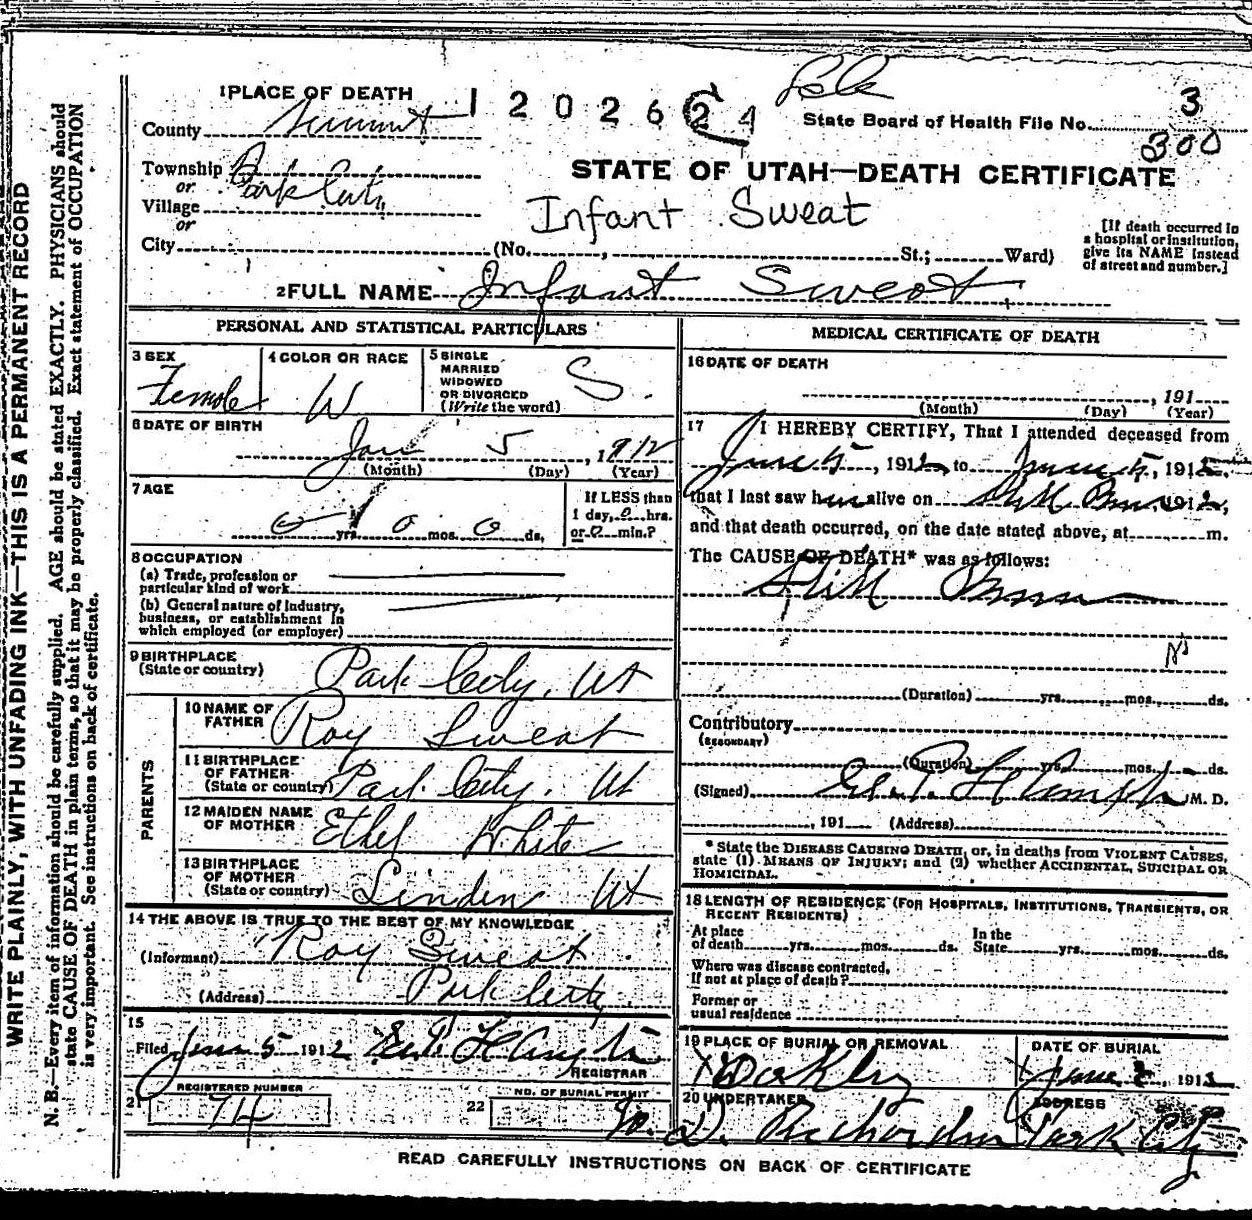 1 PLACE OF DEATH
1202624
State Board of Health File No. 3
300
County Summit
Township
or
Village Park City
or
City (No. , St.; Ward)
STATE OF UTAH—DEATH CERTIFICATE
Infant Sweat
[If death occurred in a hospital or institution, give its NAME instead of street and number.]
2 FULL NAME Infant Sweat
PERSONAL AND STATISTICAL PARTICULARS
3 SEX Female
4 COLOR OR RACE W
5 SINGLE MARRIED WIDOWED OR DIVORCED (Write the word) S.
6 DATE OF BIRTH
Jan 5, 1912
(Month) (Day) (Year)
7 AGE
0 yrs. 0 mos. 0 ds.
If LESS than 1 day, 0 hrs. or 0 min.?
8 OCCUPATION
(a) Trade, profession or particular kind of work
(b) General nature of industry, business, or establishment in which employed (or employer)
9 BIRTHPLACE (State or country) Park City, Ut
PARENTS
10 NAME OF FATHER Roy Sweat
11 BIRTHPLACE OF FATHER (State or country) Park City, Ut
12 MAIDEN NAME OF MOTHER Ethel White
13 BIRTHPLACE OF MOTHER (State or country) Linden Ut
14 THE ABOVE IS TRUE TO THE BEST OF MY KNOWLEDGE
(Informant) Roy Sweat
(Address) Park City
15
Filed 5 1912
REGISTRAR
REGISTERED NUMBER
21 74
NO. OF BURIAL PERMIT
22
MEDICAL CERTIFICATE OF DEATH
16 DATE OF DEATH
, 191
(Month) (Day) (Year)
17 I HEREBY CERTIFY, That I attended deceased from
5, 1912 to 5, 1912
that I last saw h alive on Still Born 1912,
and that death occurred, on the date stated above, at m.
The CAUSE OF DEATH* was as follows:
Still Born
(Duration) yrs. mos. ds.
Contributory
(SECONDARY)
(Duration) yrs. mos. ds.
(Signed) M. D.
, 191 (Address)
* State the DISEASE CAUSING DEATH, or, in deaths from VIOLENT CAUSES, state (1) MEANS OF INJURY; and (2) whether ACCIDENTAL, SUICIDAL OR HOMICIDAL.
18 LENGTH OF RESIDENCE (FOR HOSPITALS, INSTITUTIONS, TRANSIENTS, OR RECENT RESIDENTS)
At place of death yrs. mos. ds. In the State yrs. mos. ds.
Where was disease contracted, if not at place of death?
Former or usual residence
19 PLACE OF BURIAL OR REMOVAL
DATE OF BURIAL
Oakley
, 1912
20 UNDERTAKER
ADDRESS
D. Richardson Park City
READ CAREFULLY INSTRUCTIONS ON BACK OF CERTIFICATE
WRITE PLAINLY, WITH UNFADING INK—THIS IS A PERMANENT RECORD
N. B.—Every item of information should be carefully supplied. AGE should be stated EXACTLY. PHYSICIANS should
state CAUSE OF DEATH in plain terms, so that it may be properly classified. Exact statement of OCCUPATION
is very important. See instructions on back of certificate.